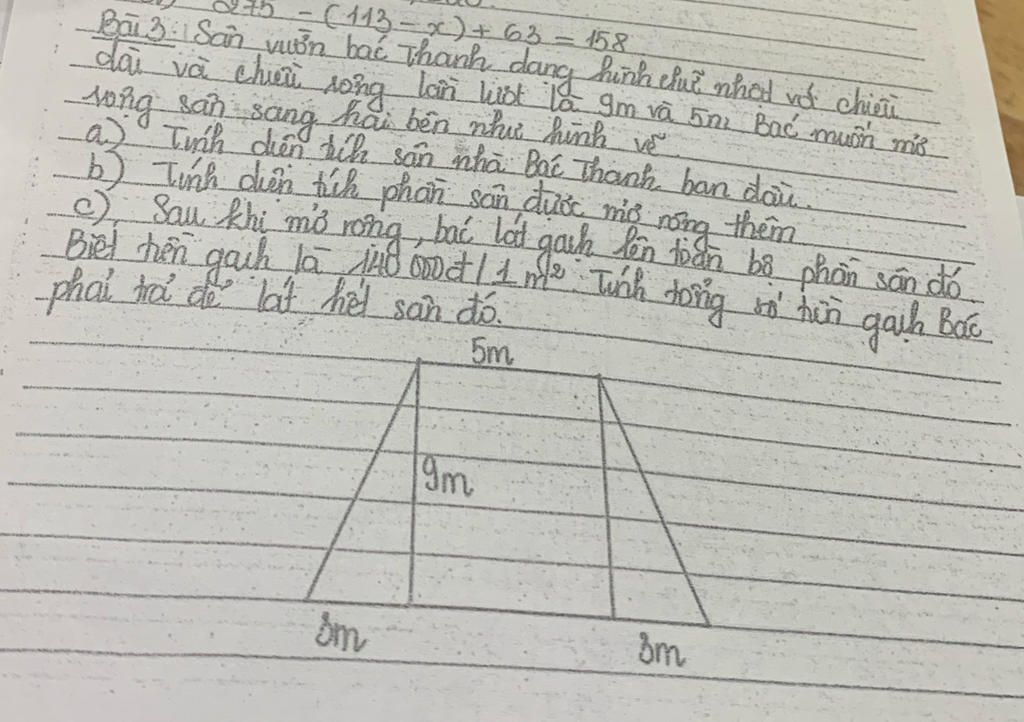 275 - (113 - x) + 63 = 158
Bài 3: Sân vườn bác Thanh dạng hình chữ nhật với chiều
dài và chiều rộng lần lượt là 9m và 5m. Bác muốn mở
rộng sân sang hai bên như hình vẽ
a) Tính diện tích sân nhà Bác Thanh ban đầu.
b) Tính diện tích phần sân được mở rộng thêm
c) Sau khi mở rộng, bác lát gạch lên toàn bộ phần sân đó.
Biết tiền gạch là 140 000đ/1m². Tính tổng số tiền gạch Bác
phải trả để lát hết sân đó.
5m
9m
3m
3m